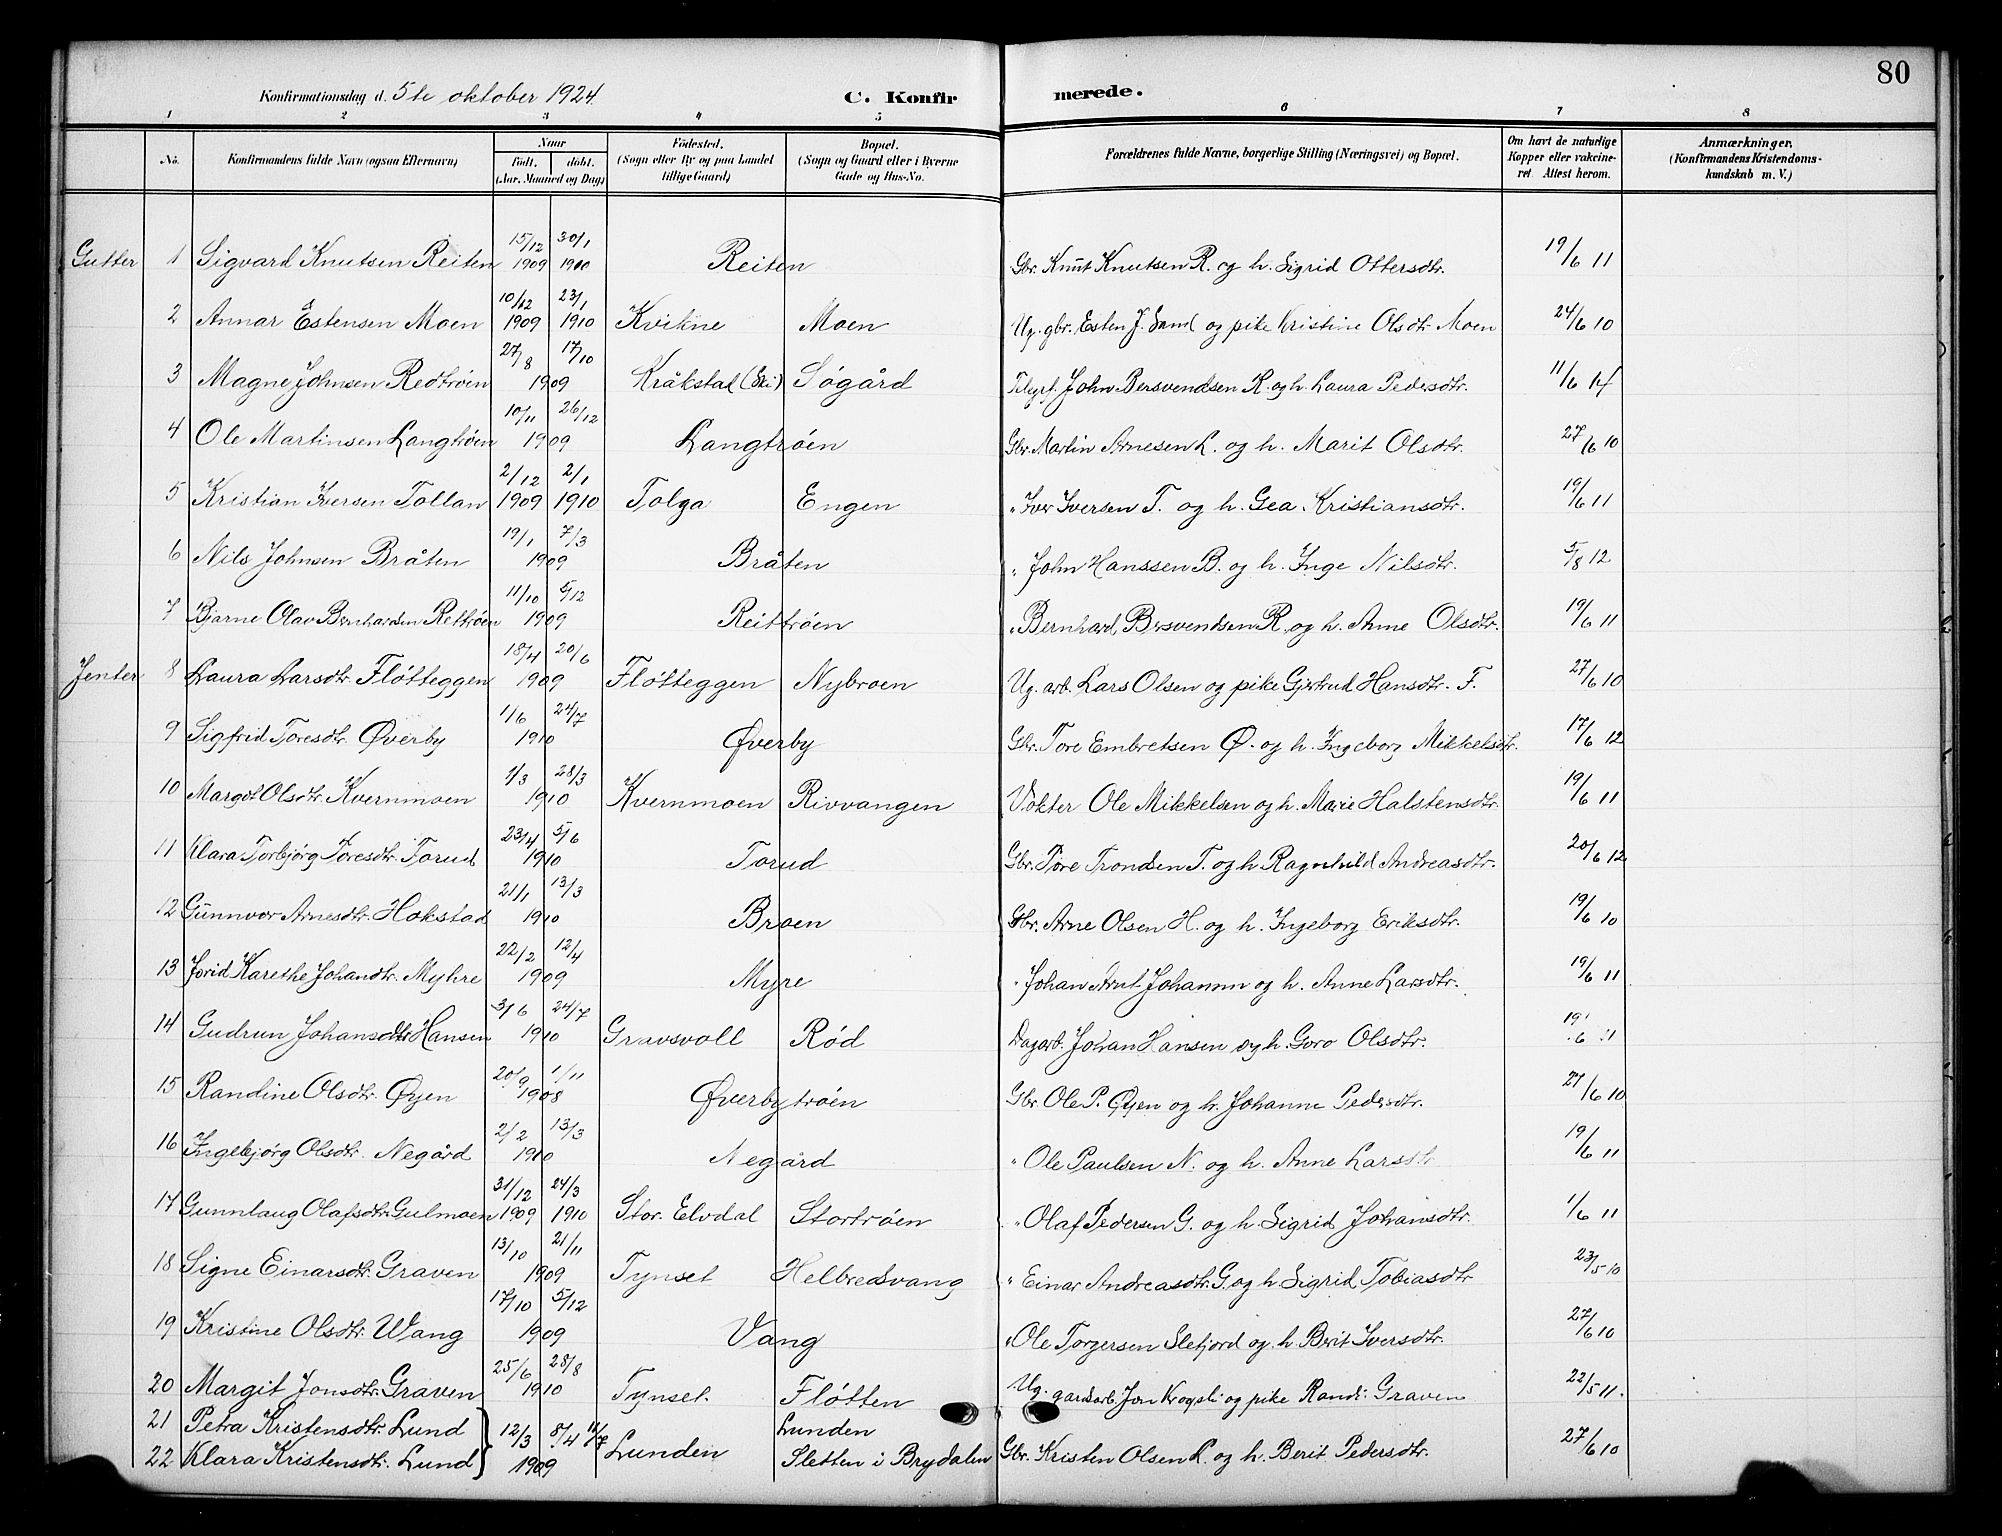 80
Konfirmationsdag d. 5te oktober 1924. C. Konfirmerede.
1 2 3 4 5 6 7 8
No. Konfirmandens fulde Navn (ogsaa Efternavn) Naar Født. døbt. (Aar, Maaned og Dag) Fødested. (Sogn eller By og paa Landet tillige Gaard) Bopæl. (Sogn og Gaard eller i Byerne Gade og Hus-No. Forældrenes fulde Navne, borgerlige Stilling (Næringsvei) og Bopæl. Om havt de naturlige Kopper eller vakcineret Attest herom. Anmærkninger. (Konfirmandens Kristendomskundskab m. V.)
Gutter 1 Sigvard Knutsen Reiten 15/12 1909 30/1 1910 Reiten Gbr. Knut Knutsen R. og h. Sigrid Ottersdtr. 19/6 11
2 Annar Estensen Moen 10/12 1909 23/1 1910 Kvikne Moen Ug. gbr. Esten J. Sand og pike Kristine Olsdtr. Moen 24/6 10
3 Magne Johnsen Redtrøen 27/8 17/10 1909 Kråkstad (Ski) Søgård Telegrf. John Bersvendsen R. og h. Laura Pedersdtr. 11/6 14
4 Ole Martinsen Langtrøen 10/11 26/12 1909 Langtrøen Gbr. Martin Arnesen L. og h. Marit Olsdtr. 27/6 10
5 Kristian Iversen Tollan 2/12 1909 2/1 1910 Tolga Engen " Iver Iversen T. og h. Gea Kristiansdtr. 19/6 11
6 Nils Johnsen Bråten 19/1 7/3 1909 Bråten " John Hanssen B. og h. Inge Nilsdtr. 5/8 12
7 Bjarne Olav Bernhardsen Rettrøen 11/10 5/12 1909 Reittrøen " Bernhard Bersvendsen R. og h. Anne Olsdtr. 19/6 11
Jenter 8 Laura Larsdtr. Fløtteggen 18/4 20/6 1909 Fløtteggen Nybroen Ug. arb. Lars Olsen og pike Gjertrud Hansdtr. F. 27/6 10
9 Sigfrid Toresdtr. Øverby 1/6 24/7 1910 Øverby Gbr. Tore Embretsen Ø. og h. Ingeborg Mikkelsdtr. 17/6 12
10 Margit Olsdtr. Kvernmoen 1/3 28/3 1910 Kvernmoen Rivvangen Vokter Ole Mikkelsen og h. Marie Halstensdtr. 19/6 11
11 Klara Torbjørg Toresdtr. Torud 23/4 5/6 1910 Torud Gbr. Tore Trondsen T. og h. Ragnhild Andreasdtr. 20/6 12
12 Gunnvor Arnesdtr. Hokstad 21/1 13/3 1910 Broen Gbr. Arne Olsen H. og h. Ingeborg Eriksdtr. 19/6 10
13 Jorid Karethe Johandtr. Myhre 22/2 12/4 1909 Myre " Johan Arnt Johannn og h. Anne Larsdtr. 19/6 11
14 Gudrun Johansdtr. Hansen 3/6 24/7 1910 Gravsvoll Rød Dagarb. Johan Hansen og h. Goro Olsdtr. 19/6 11
15 Randine Olsdtr. Øyen 20/9 1/11 1908 Øverbytrøen Gbr. Ole P. Øyen og h. Johanne Pedersdtr. 27/6 10
16 Ingebjørg Olsdtr. Negård 2/2 13/3 1910 Negård " Ole Paulsen N. og h. Anne Larsdtr 19/6 11
17 Gunnlaug Olafsdtr. Gulmoen 31/12 1909 24/3 1910 Stor. Elvdal Stortrøen " Olaf Pedersen G. og h. Sigrid Johansdtr. 1/6 11
18 Signe Einarsdtr. Graven 13/10 21/11 1909 Tynset Helbredsvang " Einar Andreasdtr. G. og h. Sigrid Tobiasdtr 23/5 10
19 Kristine Olsdtr. Wang 17/10 5/12 1909 Vang " Ole Torgersen Slefjord og h. Berit Iversdtr. 27/6 10
20 Margit Jonsdtr. Graven 25/6 28/8 1910 Tynset. Fløtten Ug. gardarb. Jon Krogsli og pike Randi Graven 22/5 11.
21 Petra Kristensdtr. Lund 12/3 8/4 1909 Lunden Lunden
22 Klara Kristensdtr. Lund Sletten i Brydalen Gbr. Kristen Olsen L. og h. Berit Pedersdtr. 27/6 10